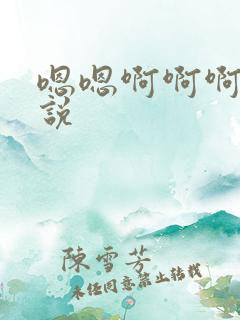 嗯嗯啊啊啊
說
陳雪芳
未经同意禁止转载